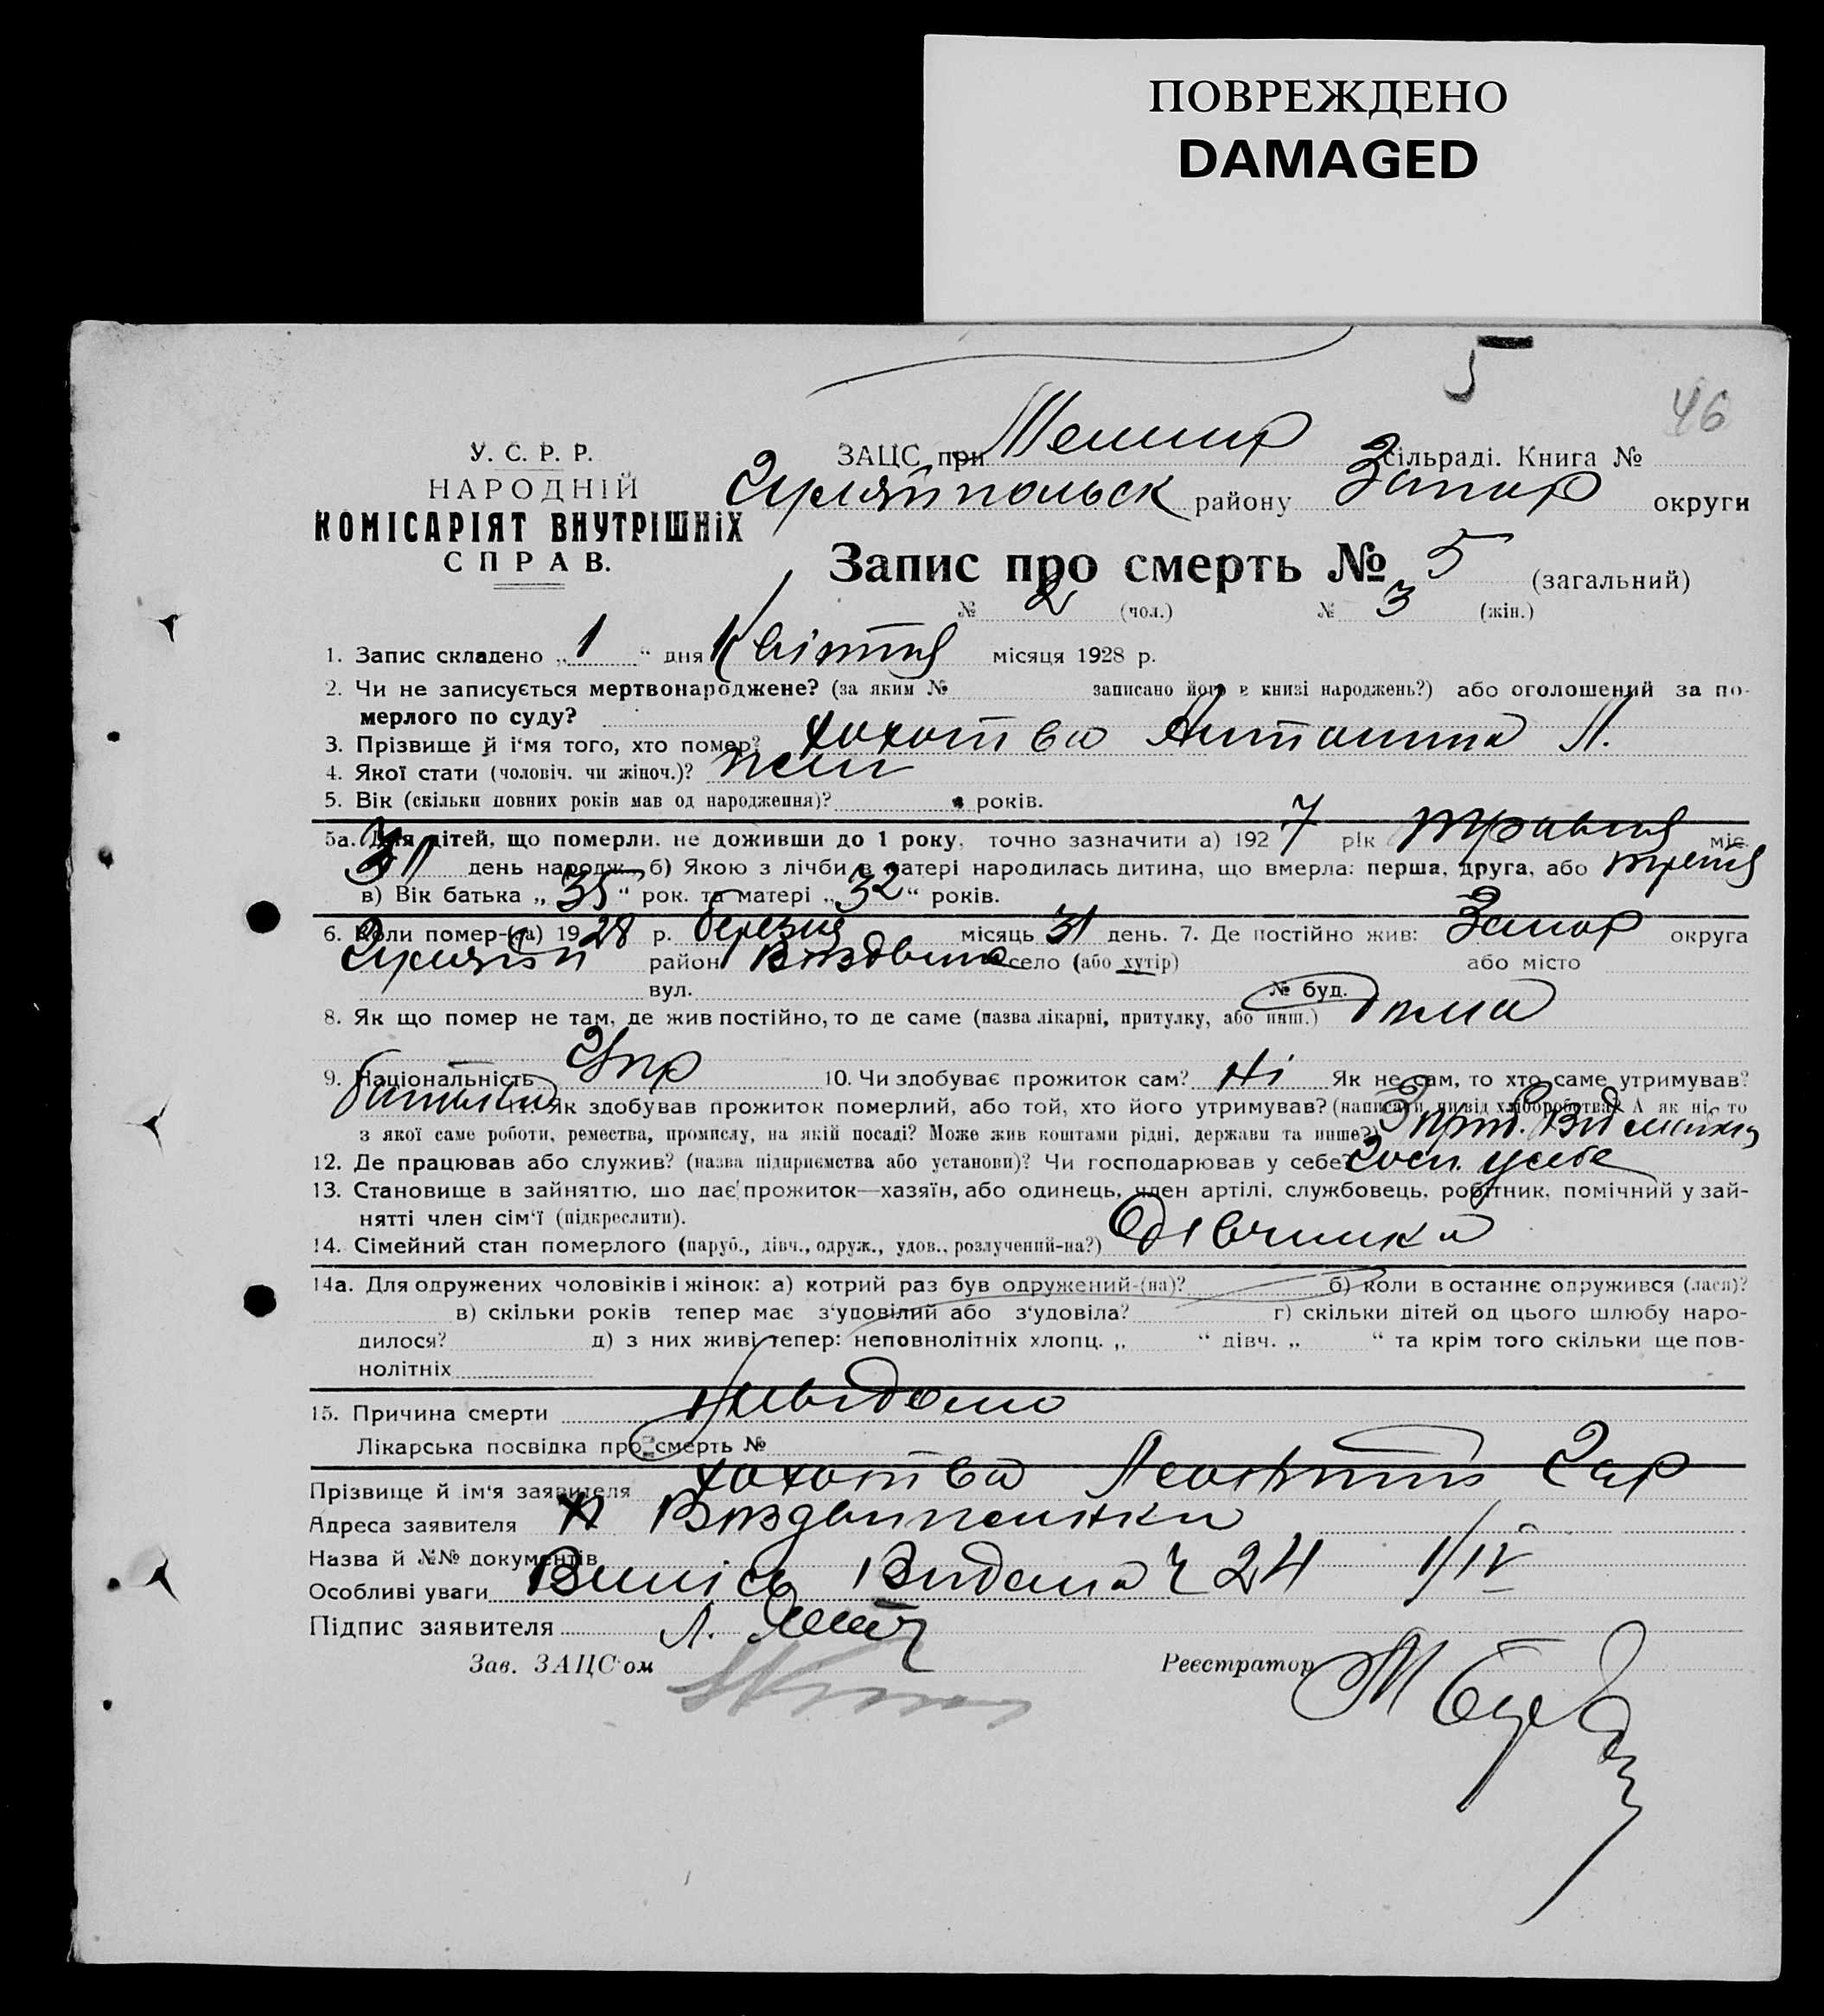 ПОВРЕЖДЕНО
DAMAGED
5
46
У. С. Р. Р.
НАРОДНІЙ
КОМІСАРІЯТ ВНУТРІШНІХ
СПРАВ.
ЗАЦС при сільраді. Книга №
Гуляйпольск району Запор округи
Запис про смерть № 5 (загальний)
№ 2 (чол.) № 3 (жін.)
1. Запис складено „ 1 “ дня Квітня місяця 1928 р.
2. Чи не записується мертвонароджене? (за яким № записано його в книзі народжень?) або оголошений за по-
мерлого по суду?
3. Прізвище й і‘мя того, хто помер? Антонина Л.
4. Якої стати (чоловіч. чи жіноч.)? жен
5. Вік (скільки повних років мав од народження)? років.
5а. Для дітей, що померли, не доживши до 1 року, точно зазначити а) 192 7 рік травня міс.
31 день народж. б) Якою з лічби в матері народилась дитина, що вмерла: перша, друга, або третя
в) Вік батька „ 35 “ рок. та матері „ 32 “ років.
6. Коли помер-(ла) 19 28 р. березня місяць 31 день. 7. Де постійно жив: Запор округа
Гуляйп район Воздвиж село (або хутір) або місто
вул. № буд.
8. Як що помер не там, де жив постійно, то де саме (назва лікарні, притулку, або инш.) дома
9. Національність Укр 10. Чи здобуває прожиток сам? Ні Як не сам, то хто саме утримував?
батько 11. Як здобував прожиток померлий, або той, хто його утримував? (написати, чи від хліборобства? А як ні, то
з якої саме роботи, ремества, промислу, на якій посаді? Може жив коштами рідні, держави та инше?)
12. Де працював або служив? (назва підприємства або установи)? Чи господарював у себе? Госп. у себе
13. Становище в зайняттю, що дає прожиток—хазяїн, або одинець, член артілі, службовець, робітник, помічний у зай-
нятті член сім‘ї (підкреслити).
14. Сімейний стан померлого (паруб., дівч., одруж., удов., розлучений-на?) дівчинка
14а. Для одружених чоловіків і жінок: а) котрий раз був одружений-(на)? б) коли в останнє одружився (лася)?
в) скільки років тепер має з‘удовілий або з‘удовіла? г) скільки дітей од цього шлюбу наро-
дилося? д) з них живі тепер: неповнолітніх хлопц. „ “ дівч. „ “ та крім того скільки ще пов-
нолітніх
15. Причина смерти Невідомо
Лікарська посвідка про смерть №
Прізвище й ім‘я заявителя
Адреса заявителя х Воздвиженка
Назва й №№ документів
Особливі уваги Випісь Видана ч 24 1/IV
Підпис заявителя Л.
Зав. ЗАЦС‘ом Реєстратор